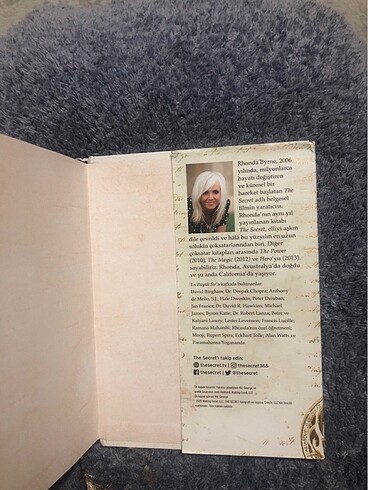 Rhonda Byrne, 2006
yılında, milyonlarca
hayatı değiştiren
ve küresel bir
hareket başlatan The
Secret adlı belgesel
filmin yaratıcısı.
Rhonda'nın aynı yıl
yayınlanan kitabı
The Secret, elliyi aşkın
dile çevrildi ve hâlâ bu yüzyılın en uzun
soluklu çoksatarlarından biri. Diğer
çoksatar kitapları arasında The Power
(2010), The Magic (2012) ve Hero'yu (2013)
sayabiliriz. Rhonda, Avustralya'da doğdu
ve şu anda California'da yaşıyor.
En Büyük Sır'a katkıda bulunanlar:
David Bingham; Dr. Deepak Chopra; Anthony
de Mello, S.J.; Hale Dwoskin; Peter Dziuban;
Jan Frazier; Dr. David R. Hawkins; Michael
James; Byron Katie; Dr. Robert Lanza; Peter ve
Kalyani Lawry; Lester Levenson; Francis Lucille;
Ramana Maharshi; Rhonda'nın özel öğretmeni;
Mooji; Rupert Spira; Eckhart Tolle; Alan Watts ve
Paramahansa Yogananda.
The Secret'ı takip edin:
thesecret.tv | thesecret365
thesecret | @thesecret